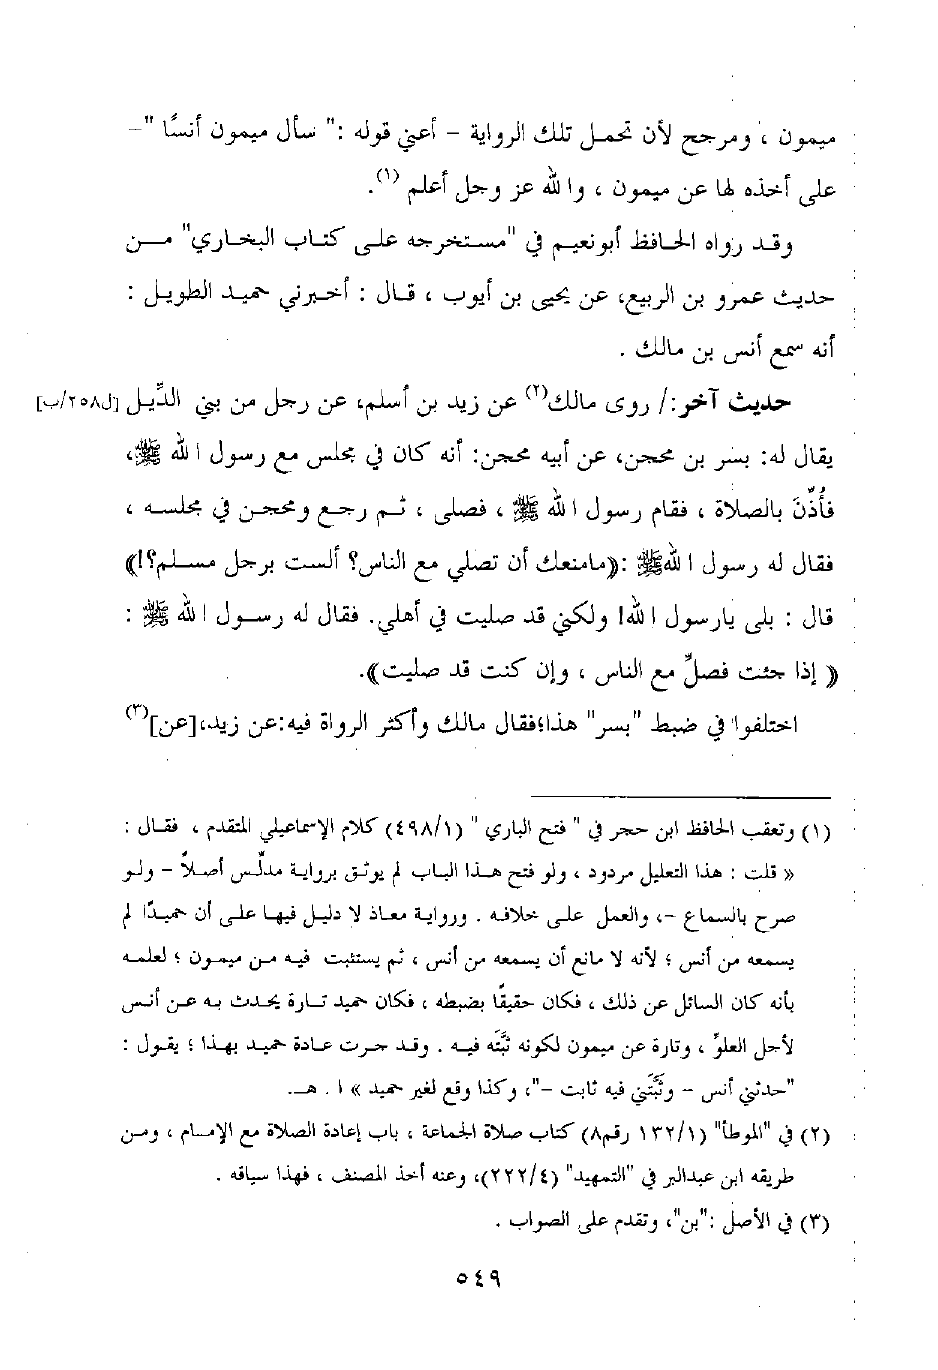 ميمون ، ومرجح لأن تحمل تلك الرواية – أعني قوله :" سأل ميمون أنسًا "–
على أخذه لها عن ميمون ، والله عز وجل أعلم (١).
وقد رواه الحافظ أبونعيم في "مستخرجه على كتاب البخاري" من
حديث عمرو بن الربيع، عن يحيى بن أيوب ، قال : أخبرني حميد الطويل :
أنه سمع أنس بن مالك .
حديث آخر:/ روى مالك(٢) عن زيد بن أسلم، عن رجل من بني الدِّيل [ل٢٥٨/ب]
يقال له: بسر بن محجن، عن أبيه محجن: أنه كان في مجلس مع رسول الله ﷺ،
فأُذِّنَ بالصلاة ، فقام رسول الله ﷺ ، فصلى ، ثم رجع ومحجن في مجلسه ،
فقال له رسول الله ﷺ :((مامنعك أن تصلي مع الناس؟ ألست برجل مسلم؟!))
قال : بلى يارسول الله! ولكني قد صليت في أهلي. فقال له رسول الله ﷺ :
(( إذا جئت فصلِّ مع الناس ، وإن كنت قد صليت)).
اختلفوا في ضبط "بسر" هذا؛فقال مالك وأكثر الرواة فيه:عن زيد،[عن](٣)
(١) وتعقب الحافظ ابن حجر في " فتح الباري " (٤٩٨/١) كلام الإسماعيلي المتقدم ، فقال :
« قلت : هذا التعليل مردود ، ولو فتح هذا الباب لم يوثق برواية مدلِّس أصلاً – ولو
صرح بالسماع –، والعمل على خلافه . ورواية معاذ لا دليل فيها على أن حميدًا لم
يسمعه من أنس ؛ لأنه لا مانع أن يسمعه من أنس ، ثم يستثبت فيه من ميمون ؛ لعلمه
بأنه كان السائل عن ذلك ، فكان حقيقًا بضبطه ، فكان حميد تارة يحدث به عن أنس
لأجل العلوِّ ، وتارة عن ميمون لكونه ثبَّتَه فيه . وقد جرت عادة حميد بهذا ؛ يقول :
"حدثني أنس – وثبَّتَني فيه ثابت –"، وكذا وقع لغير حميد » ا . هـ.
(٢) في "الموطأ" (١٣٢/١ رقم٨) كتاب صلاة الجماعة ، باب إعادة الصلاة مع الإمام ، ومن
طريقه ابن عبدالبر في "التمهيد" (٢٢٢/٤)، وعنه أخذ المصنف ، فهذا سياقه .
(٣) في الأصل :"بن"، وتقدم على الصواب .
٥٤٩